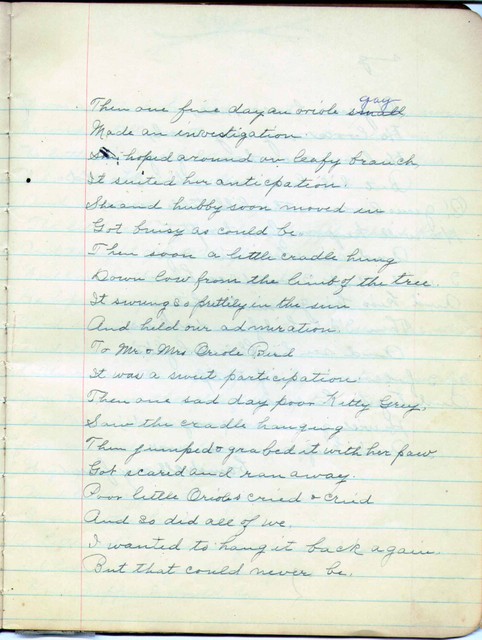 Then one fine day an oriole small gay
Made an investigation
hoped around on leafy branch,
It suited her anticpation.
She and hubby soon moved in
Got buisy as could be.
Then soon a little cradle hung
Down low from the limb of the tree.
It swung so prettily in the sun
And held our admiration
To Mr & Mrs Oriole Bird
It was a sweet participation
Then one sad day poor Kitty Grey,
Saw the cradle hanging
Then jumped & grabed it with her paw
Got scared and ran away.
Poor little Orioles cried & cried
And so did all of we.
I wanted to hang it back again.
But that could never be.